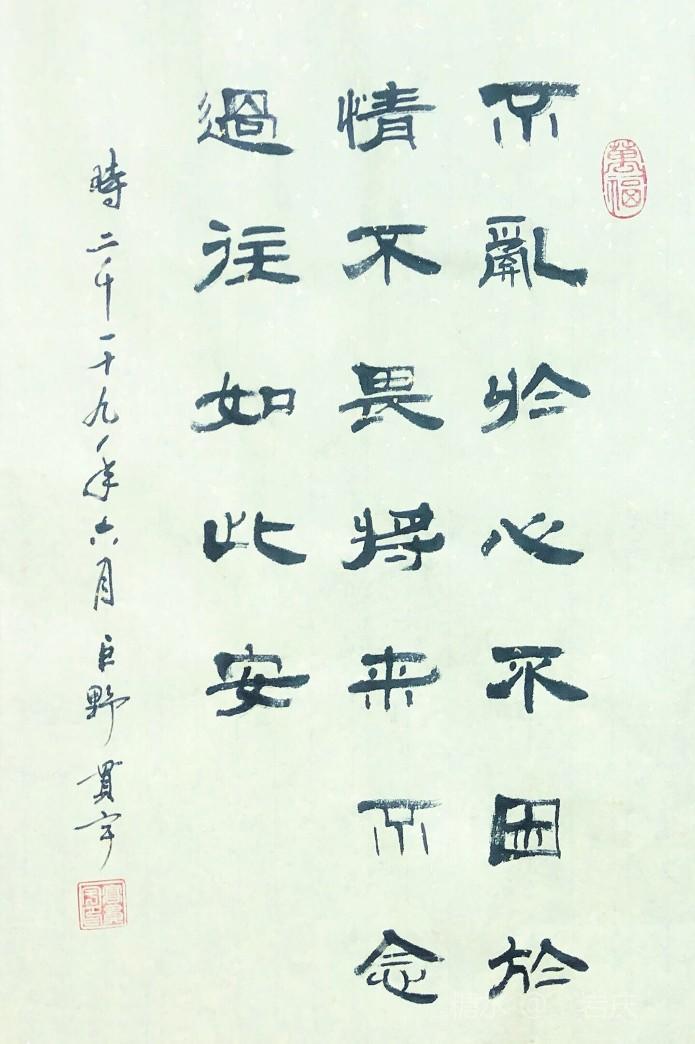 萬福
不亂於心不困於
情不畏將来不念
過往如此安
時二千一十九年六月巨野貫宇